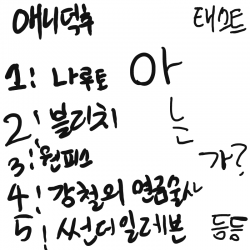 애니덕추 테스트
1: 나루토
2: 블리치
3: 원피스
4: 강철의 연금술사
5: 썬더일레븐
아
는
가?
등등